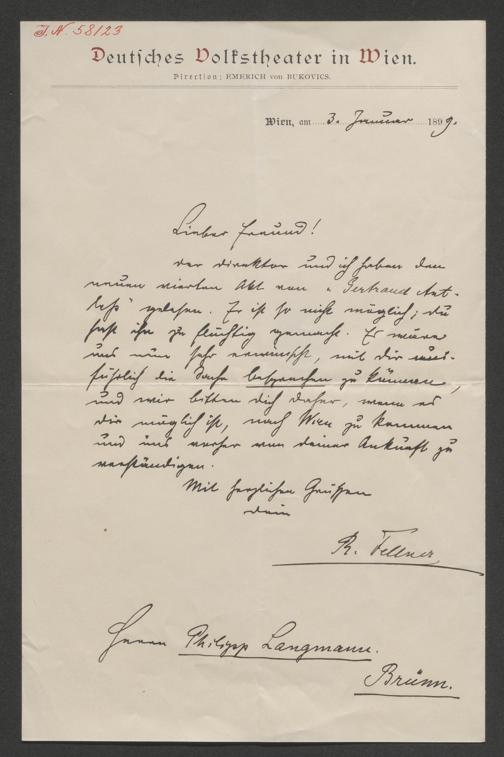 J.N. 58123
Deutsches Volkstheater in Wien.
Direction: EMERICH von BUKOVICS.
Wien, am 3. Januar 1899.
Lieber Freund!
der Direktor und ich haben den
neuen vierten Akt von „Gertraud Ant-
leß" gelesen. Er ist so nicht möglich; du
hast ihn zu flüchtig gemacht. Es wäre
uns nun sehr erwünscht, mit dir aus-
führlich die Sache besprechen zu können,
und wir bitten dich daher, wenn es
dir möglich ist, nach Wien zu kommen
und uns vorher von deiner Ankunft zu
verständigen.
Mit herzlichen Grüßen
dein
R. Fellner
Herrn Philipp Langmann.
Brünn.